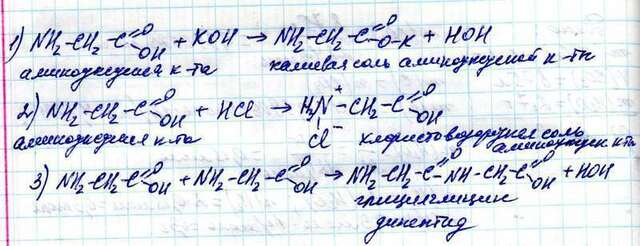 1) NH₂-CH₂-C(=O)-OH + KOH → NH₂-CH₂-C(=O)-O-K + HOH
аминоуксусная к-та калиевая соль аминоуксусной к-ты
2) NH₂-CH₂-C(=O)-OH + HCl → H₃N⁺-CH₂-C(=O)-OH
Cl⁻
аминоуксусная к-та хлористоводородная соль аминоуксусн к-ты
3) NH₂-CH₂-C(=O)-OH + NH₂-CH₂-C(=O)-OH → NH₂-CH₂-C(=O)-NH-CH₂-C(=O)-OH + HOH
глицилглицин
дипептид